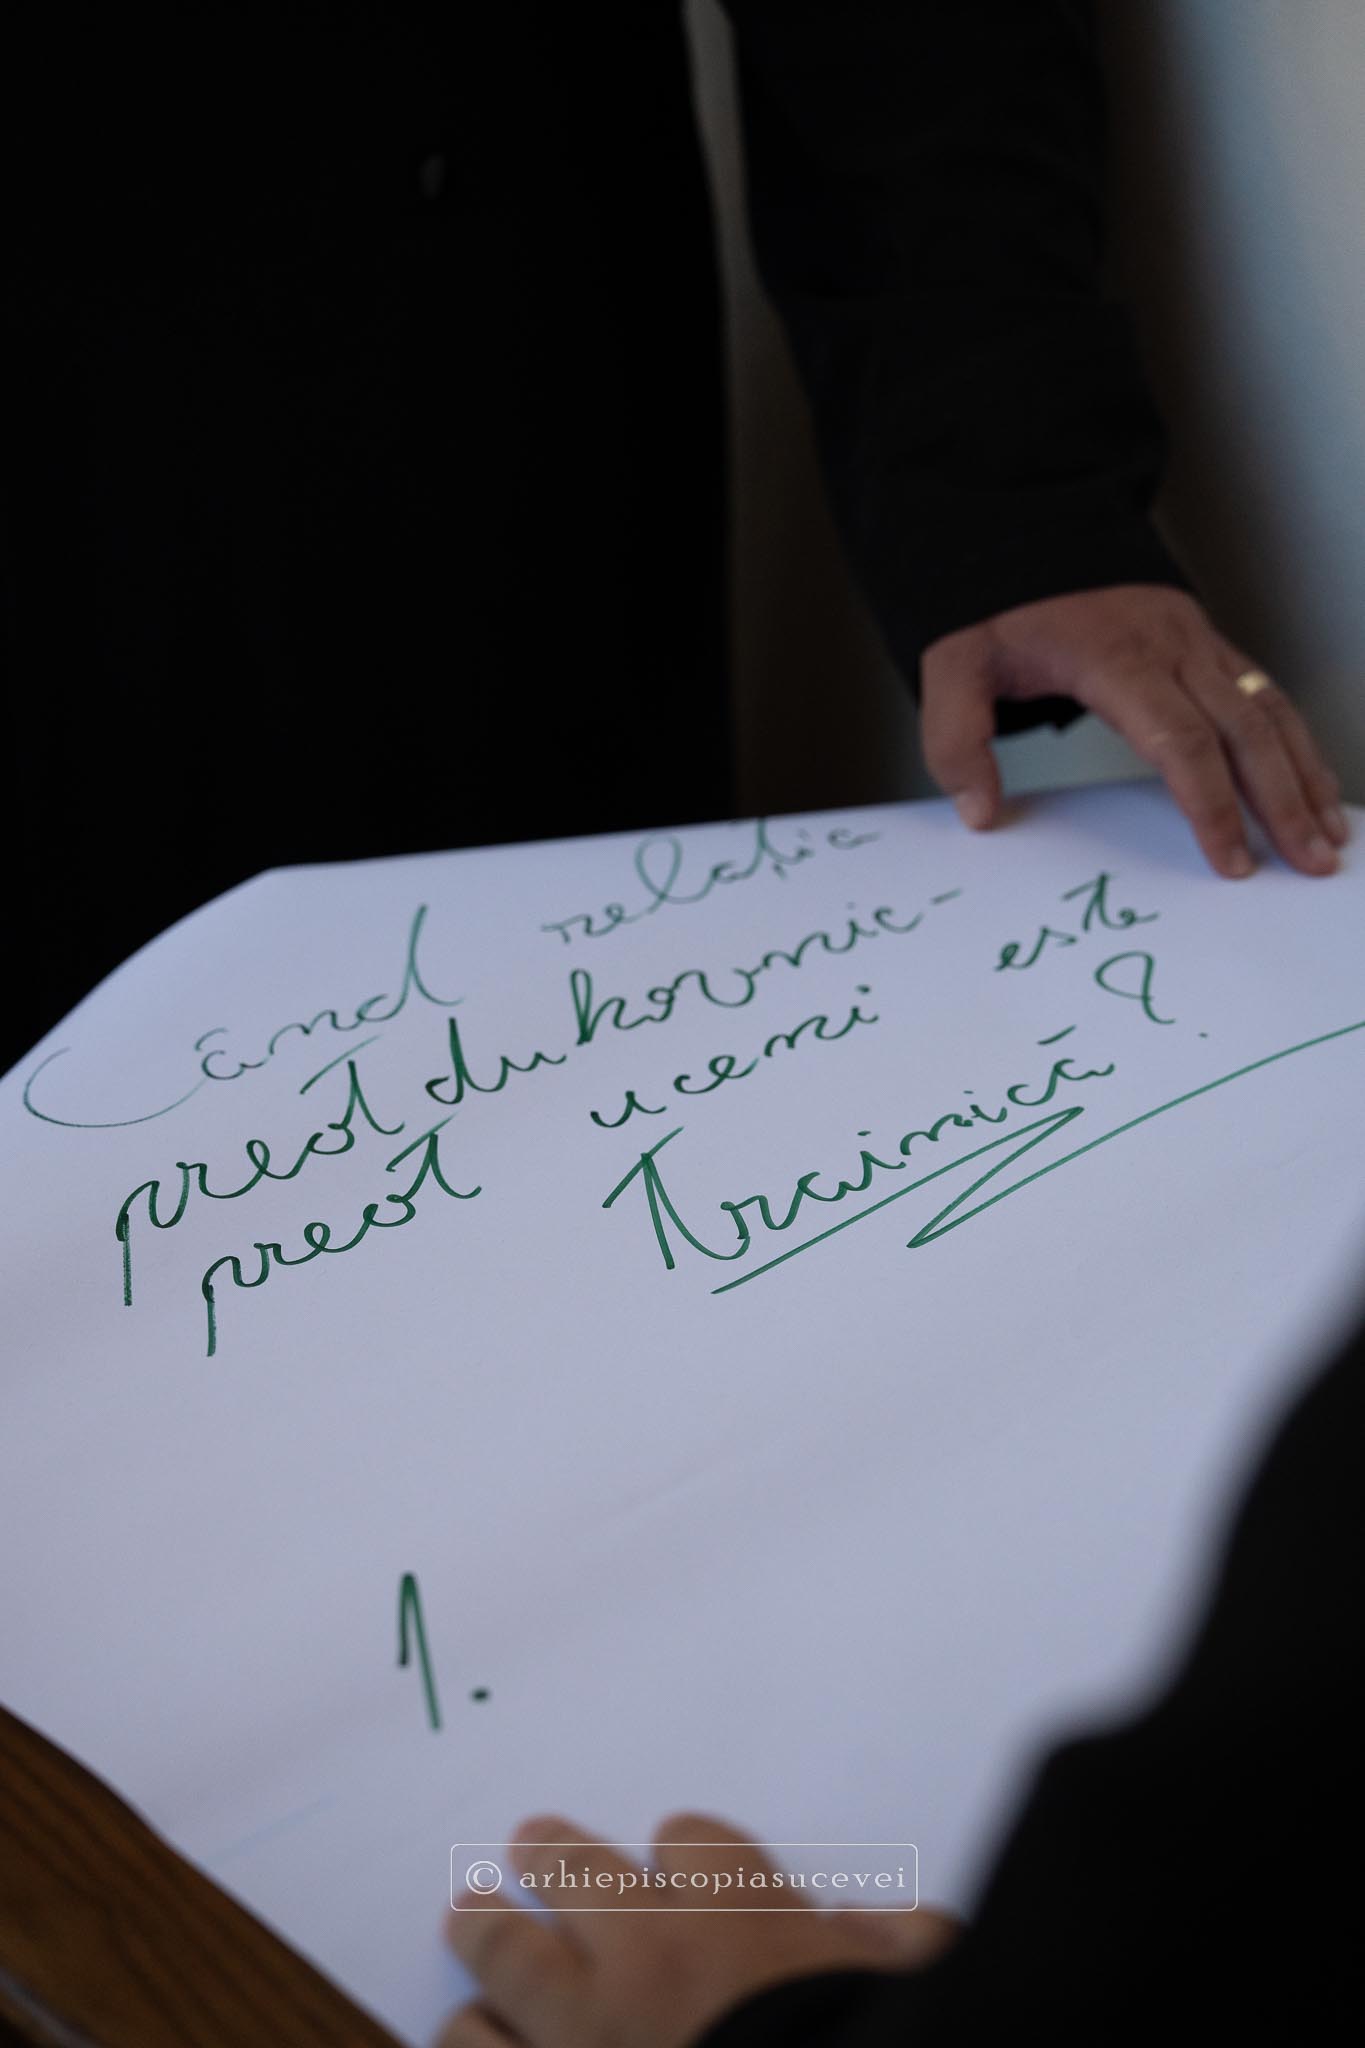 Când relația
preot duhovnic-
preot ucenic este
trainică?
1.
© arhiepiscopiasucevei